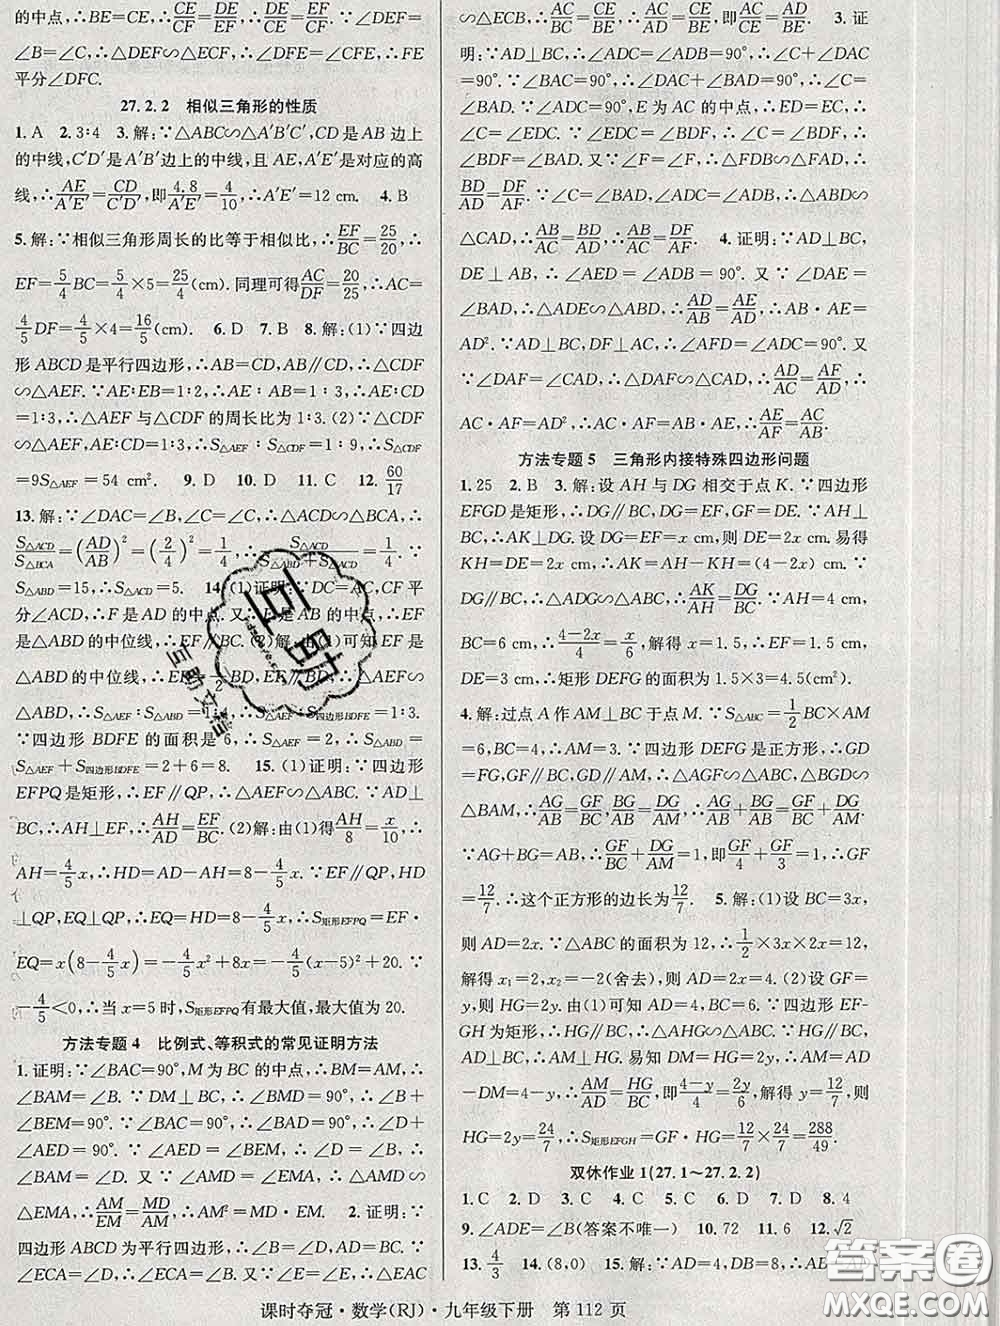 的中点,∴BE=CE.∴CE/CF=DE/EF,∴CE/DE=CF/EF.∵∠DEF
=∠B=∠C,∴△DEF∽△ECF,∴∠DFE=∠CFE,∴FE
平分∠DFC.
27.2.2 相似三角形的性质
1. A 2. 3∶4 3. 解:∵△ABC∽△A′B′C′,CD是AB边上
的中线,C′D′是A′B′边上的中线,且AE,A′E′是对应的高
线,∴AE/A′E′=CD/C′D′,即4.8/A′E′=4/10,∴A′E′=12 cm. 4. B
5. 解:∵相似三角形周长的比等于相似比,∴EF/BC=25/20,∴
EF=5/4BC=5/4×5=25/4(cm). 同理可得AC/DF=20/25,∴AC=
4/5DF=4/5×4=16/5(cm). 6. D 7. B 8. 解:(1)∵四边
形ABCD是平行四边形,∴AB=CD,AB∥CD,∴△CDF
∽△AEF.∵AE∶EB=1∶2,∴AE∶AB=1∶3,∴AE∶CD
=1∶3,∴△AEF与△CDF的周长比为1∶3.(2)∵△CDF
∽△AEF,AE∶CD=1∶3,∴S△AEF∶S△CDF=1∶9,∴S△CDF
=9S△AEF=54(cm²). 9. D 10. C 11. C 12. 60/17
13. 解:∵∠DAC=∠B,∠C=∠C,∴△ACD∽△BCA,∴
S△ACD/S△BCA=(AD/AB)²=(2/4)²=1/4,∴S△ACD/(S△ABD+S△ACD)=1/4.∵
S△ABD=15,∴S△ACD=5. 14. (1)证明:∵DC=AC,CF平
分∠ACD,∴F是AD的中点.又∵E是AB的中点,∴EF是
△ABD的中位线,∴EF∥BC.(2)解:由(1)可知EF是
△ABD的中位线,∴EF∥BD,EF=1/2BD,∴△AEF∽
△ABD,∴S△AEF∶S△ABD=1∶4,∴S△AEF∶S四边形BDFE=1∶3.
∵四边形BDFE的面积是6,∴S△AEF=2,∴S△ABD=
S△AEF+S四边形BDFE=2+6=8. 15. (1)证明:∵四边形
EFPQ是矩形,∴EF∥QP,∴△AEF∽△ABC.∵AD⊥
BC,∴AH⊥EF,∴AH/AD=EF/BC.(2)解:由(1)得AH/8=x/10,∴
AH=4/5x,∴HD=AD-AH=8-4/5x.∵EF∥QP,HP
⊥QP,EQ⊥QP,∴EQ=HD=8-4/5x,∴S矩形EFPQ=EF·
EQ=x(8-4/5x)=-4/5x²+8x=-4/5(x-5)²+20.∵
-4/5<0,∴当x=5时,S矩形EFPQ有最大值,最大值为20.
方法专题4 比例式、等积式的常见证明方法
1. 证明:∵∠BAC=90°,M为BC的中点,∴BM=AM,∴
∠BAM=∠B.∵DM⊥BC,∴∠BMD=90°,∴∠B+
∠BEM=90°.∵∠BAC=90°,∴∠DAE=90°,∴∠D+
∠AED=90°.∵∠AED=∠BEM,∴∠B=∠D,∴
∠BAM=∠D.∵∠AMD=∠EMA,∴△AMD∽△EMA,
∴AM/EM=MD/AM,∴AM²=MD·EM. 2. 证明:∵
四边形ABCD为平行四边形,∴∠B=∠D,AD∥BC.∵
∠ECA=∠D,∴∠ECA=∠B.∵∠E=∠E,∴△EAC
∽△ECB,∴AE/CE=CE/BE=AC/BC.∵BC=AD,即CE/BE=AC/AD. 3. 证
明:∵AD⊥BC,∴∠ADC=∠ADB=90°,∴∠C+∠DAC
=90°.∵∠BAC=90°,∴∠BAD+∠DAC=90°,∴∠C=
∠BAD.∵∠ADC=90°,E为AC的中点,∴ED=EC,∴
∠C=∠EDC.∵∠EDC=∠BDF,∴∠BDF=∠C=
∠BAD.又∵∠F=∠F,∴△FDB∽△FAD,∴
BD/AD=DF/AF.∵∠C=∠BAD,∠ADC=∠BAC,∴△ABD
∽△CAD,∴AB/AC=BD/AD,∴AB/AC=DF/AF. 4. 证明:∵AD⊥BC,
DE⊥AB,∴∠AED=∠ADB=90°.又∵∠DAE=
∠BAD,∴△ADE∽△ABD,∴AD/AB=AE/AD,∴AB·AE=
AD².∵AD⊥BC,DF⊥AC,∴∠AFD=∠ADC=90°.又
∵∠DAF=∠CAD,∴△DAF∽△CAD,∴AD/AC=AF/AD,∴
AC·AF=AD²,∴AB·AE=AC·AF,∴AE/AF=AC/AB.
方法专题5 三角形内接特殊四边形问题
1. 25 2. B 3. 解:设AH与DG相交于点K.∵四边形
EFGD是矩形,∴DG∥BC,DG=EF,GF=DE.∵AH⊥
BC,∴AK⊥DG.设DG=EF=x cm,则DE=2x cm.易得
KH=DE=2x cm,∴AK=AH-KH=(4-2x)cm.∵
DG∥BC,∴△ADG∽△ABC,∴AK/AH=DG/BC.∵AH=4 cm,
BC=6 cm,∴(4-2x)/4=x/6,解得x=1.5,∴DG=1.5 cm,
DE=3 cm,∴矩形DEFG的面积为1.5×3=4.5(cm²).
4. 解:过点A作AM⊥BC于点M.∵S△ABC=1/2BC×AM
=6,BC=4,∴AM=3.∵四边形DEFG是正方形,∴GD
=FG,GF∥BC,GD∥AM,∴△AGF∽△ABC,△BDG∽
△BAM,∴AG/AB=GF/BC,BG/AB=DG/AM,∴AG/AB+BG/AB=GF/BC+DG/AM.
∵AG+BG=AB,∴GF/BC+DG/AM=1,即GF/4+GF/3=1,∴GF
=12/7,∴这个正方形的边长为12/7. 5. 解:(1)设BC=3x,
则AD=2x.∵△ABC的面积为12,∴1/2×3x×2x=12,
解得x₁=2,x₂=-2(舍去),则AD=2x=4.(2)设GF=
y,则HG=2y.由(1)可知AD=4,BC=6.∵四边形EF-
GH为矩形,∴HG∥BC,∴△AHG∽△ABC.∵AM=AD
-DM=4-y,∴AM/AD=HG/BC,即(4-y)/4=2y/6,解得y=12/7,则
HG=2y=24/7,∴S矩形EFGH=HG·GF=12/7×24/7=288/49.
双休作业1(27.1~27.2.2)
1. C 2. D 3. C 4. B 5. C 6. C 7. D 8. 4
9. ∠ADE=∠B(答案不唯一) 10. 72 11. 6 12. √2
13. 4/3 14. (8,0) 15. 解:∵△ABC∽△ADE,
课时夺冠·数学(RJ)·九年级下册 第112页
互助
互助文档
答案圈
MXQE.COM